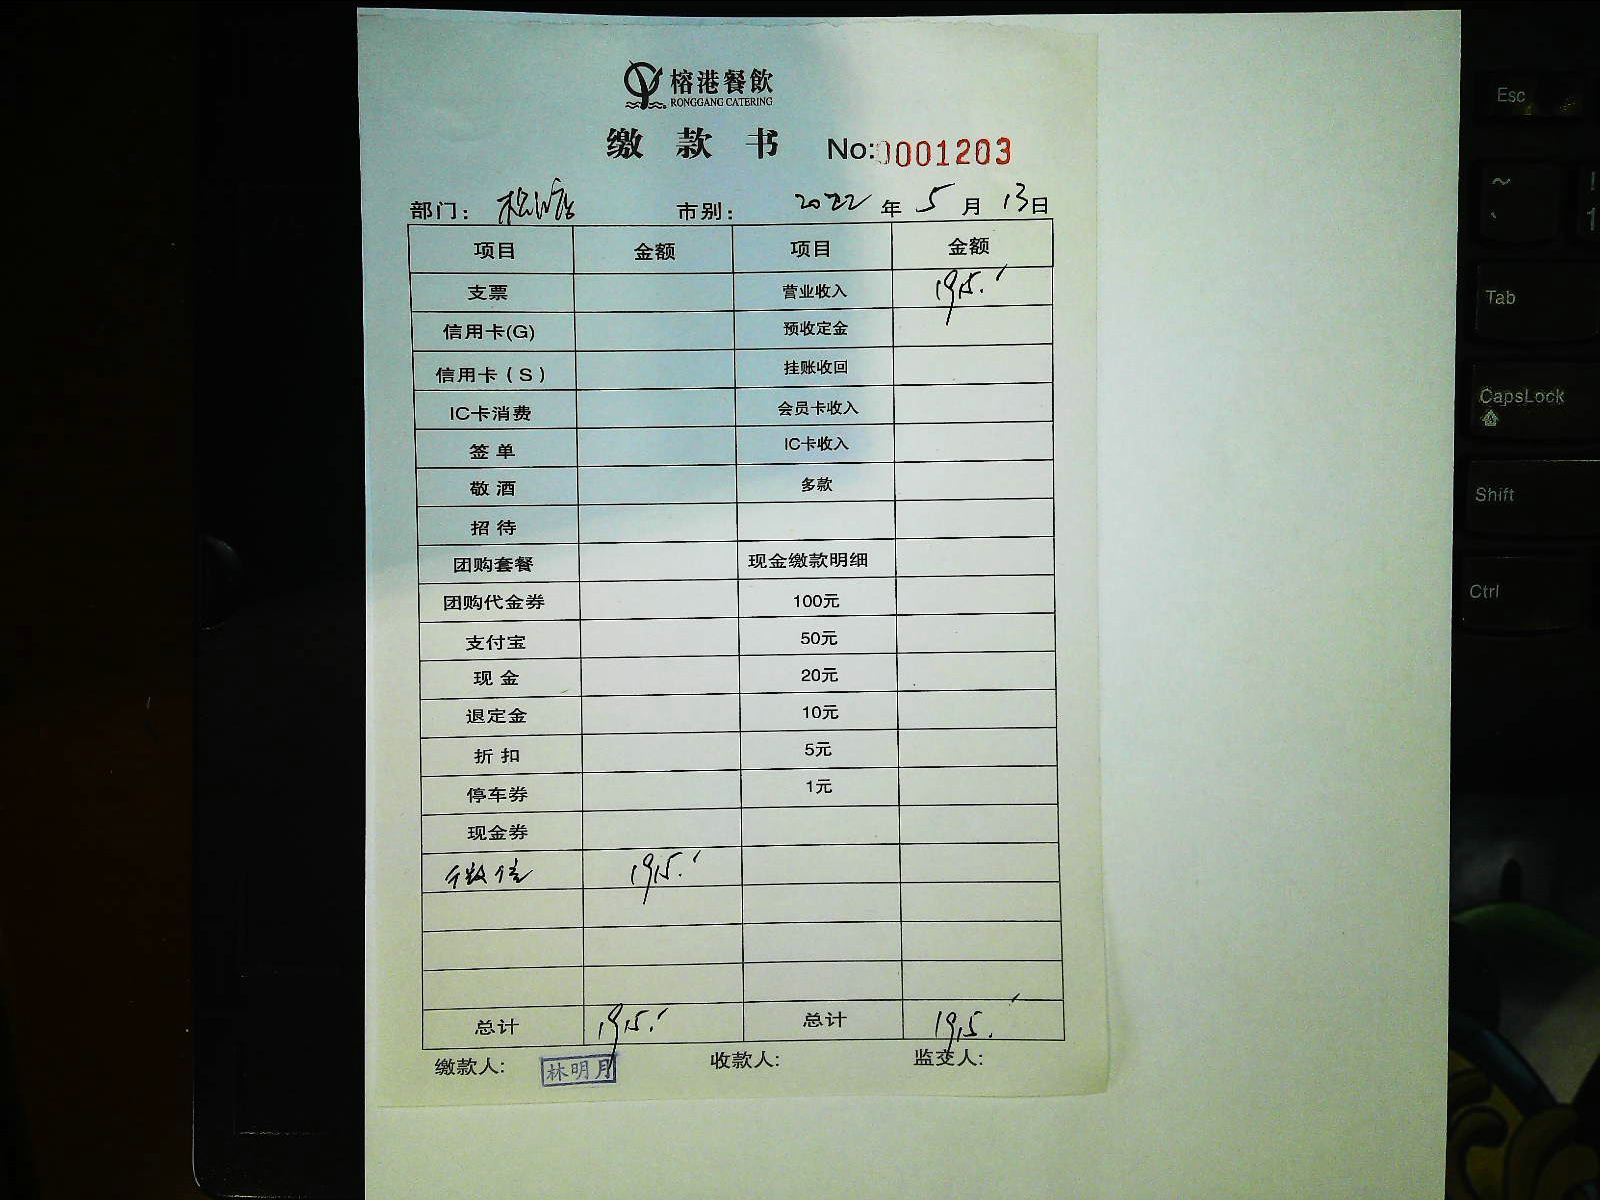 榕港餐飲
RONGGANG CATERING
缴 款 书 No:0001203
部门: 市别: 2022 年 5 月 13 日
项目 金额 项目 金额
支票 营业收入 1915.-
信用卡(G) 预收定金
信用卡（S） 挂账收回
IC卡消费 会员卡收入
签 单 IC卡收入
敬 酒 多款
招 待
团购套餐 现金缴款明细
团购代金券 100元
支付宝 50元
现 金 20元
退定金 10元
折 扣 5元
停车券 1元
现金券
微信 1915.-
总计 1915.- 总计 1915.-
缴款人: 林明月 收款人: 监交人:
Esc
~
`
!
1
Tab
CapsLock
Shift
Ctrl